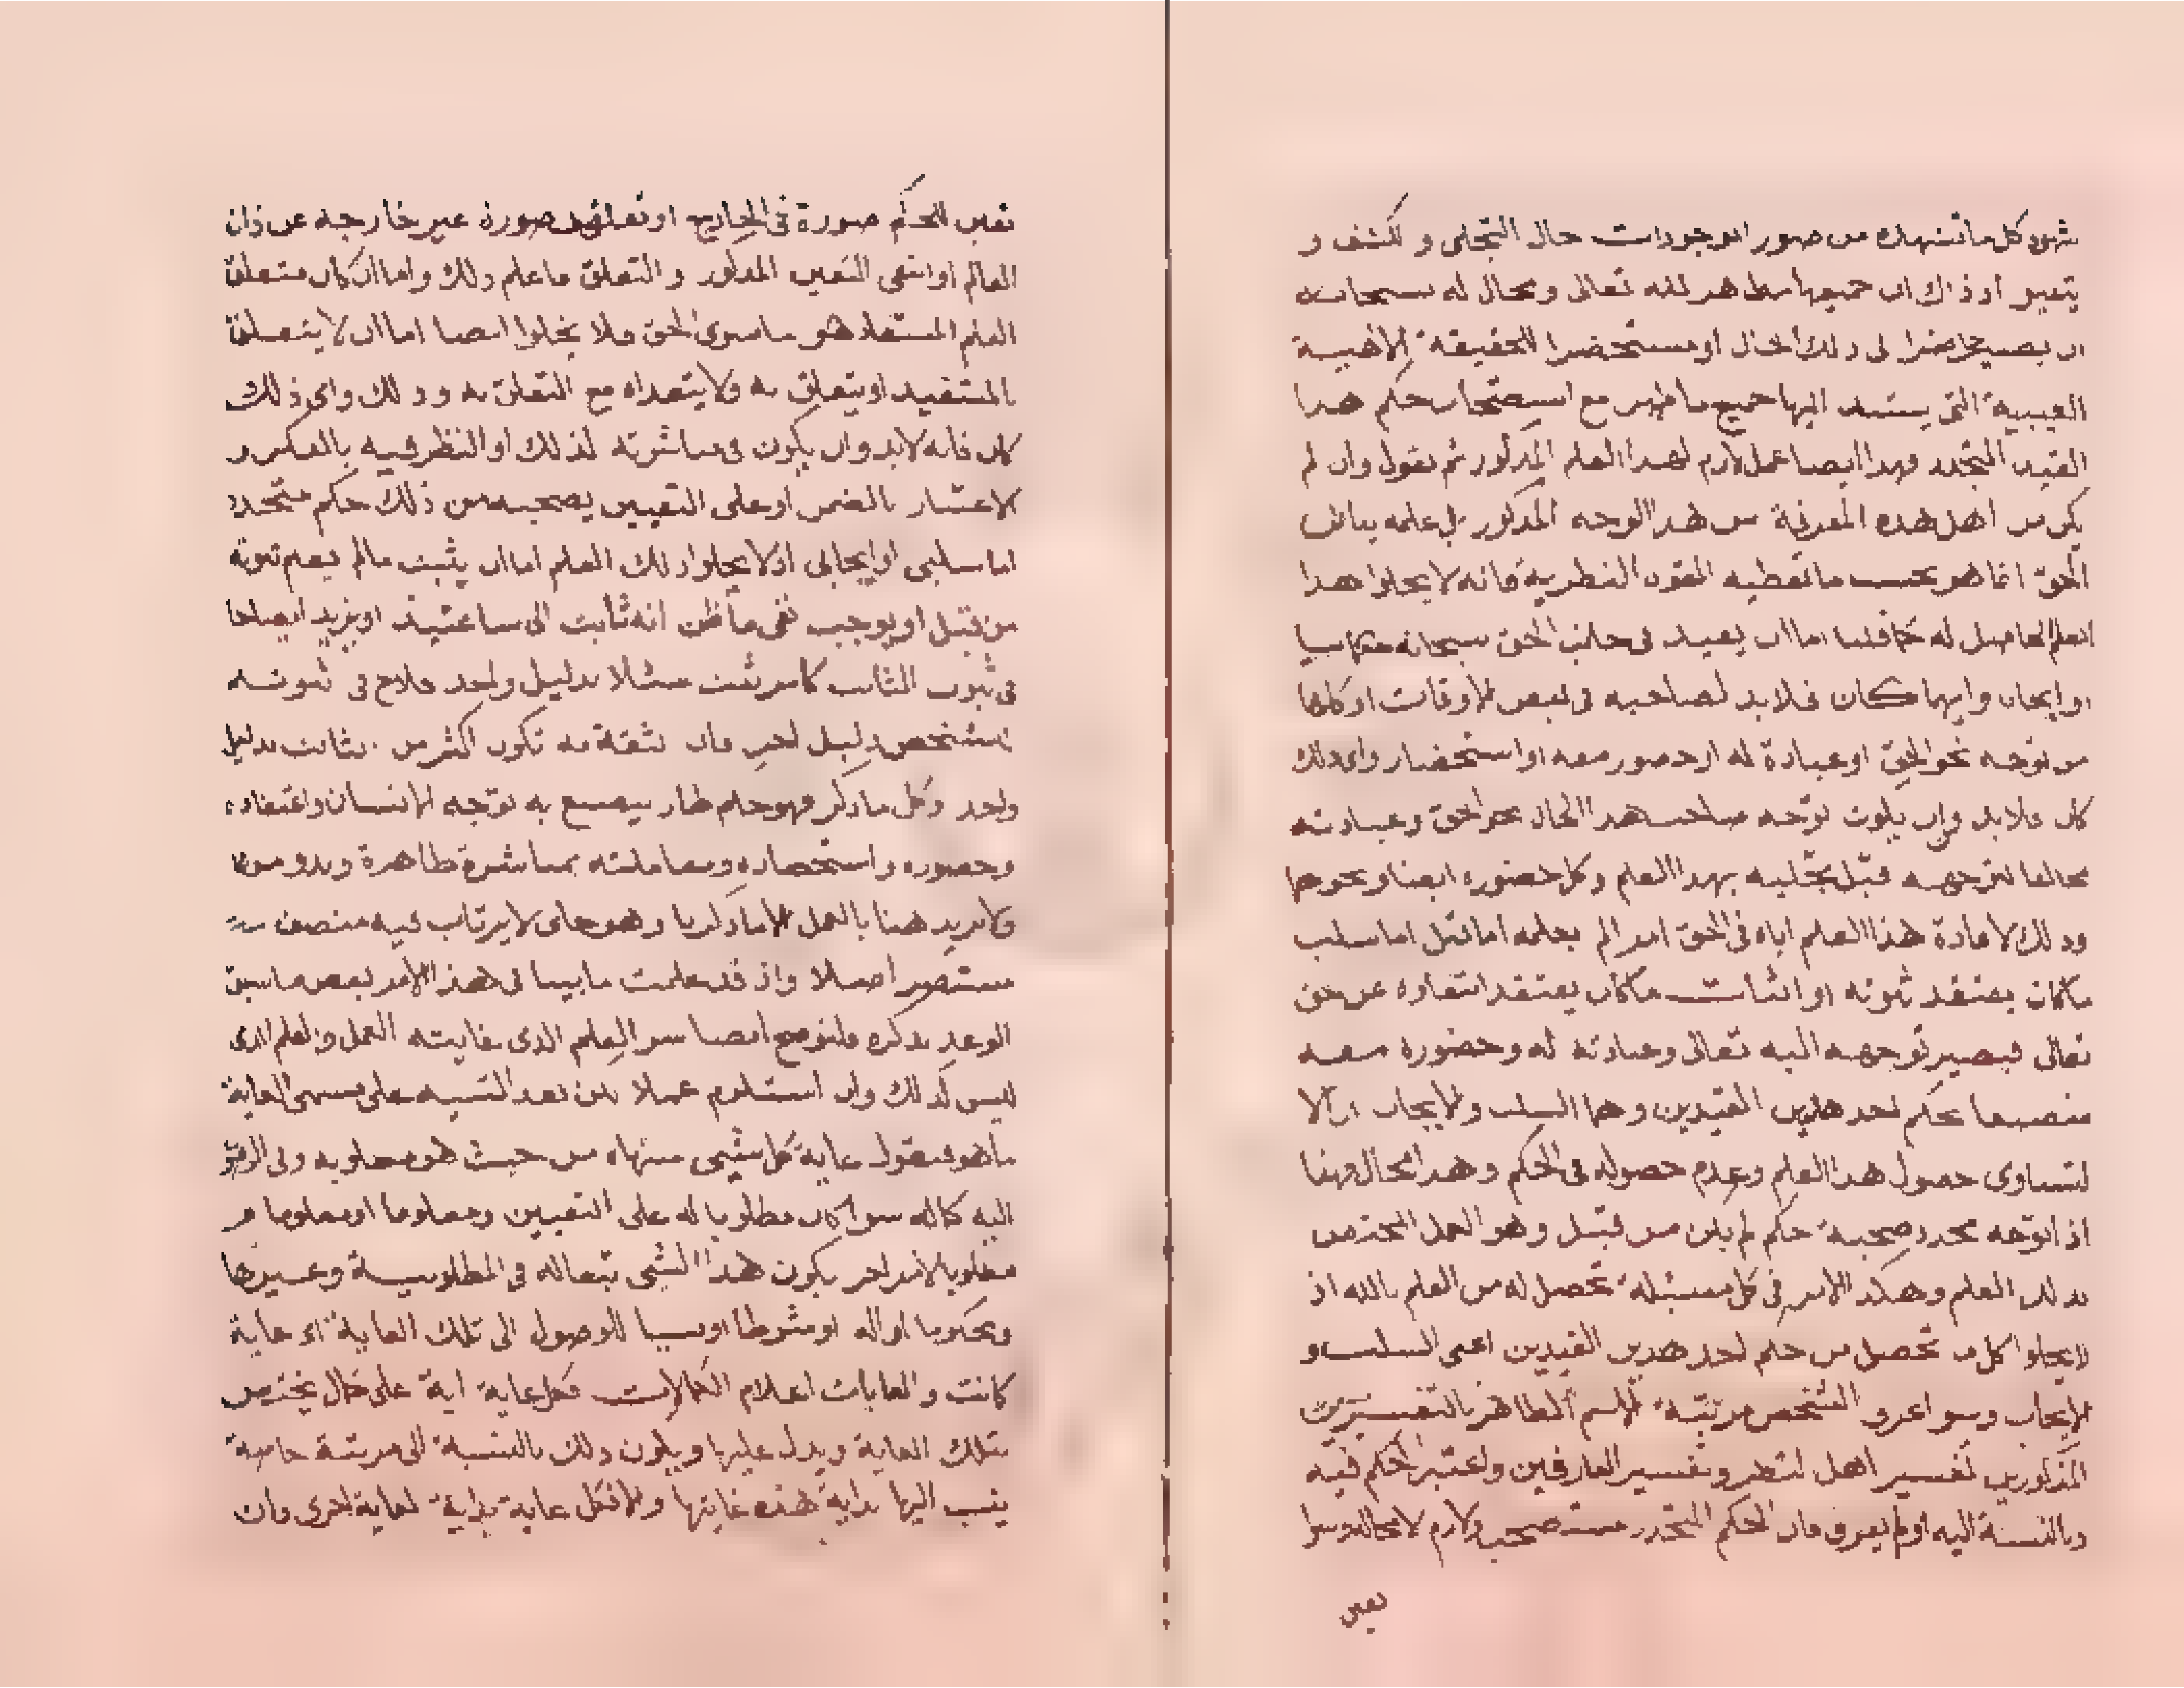 شهود كل ما تشهده من صور الموجودات حال التجلى و لكشف و
يتعين اذ ذاك ان جميعها مظاهر لله تعالى ومحال له سبحانه
ان يصير حاضرا فى ذلك الحال او مستحضرا للحقيقة الالهية
الغيبية التى يستند اليها جميع ما ظهر مع استصحاب حكم هذا
القيد المتجدد فهذا ايضا عمل لازم لهذا العلم المذكور ثم نقول وان لم
يكن من اهل هذه المعرفة من هذا الوجه المذكور بل علمه بيانى
الحق انما هو بحسب ما تعطيه القوى النظرية فانه لا يخلوا هذا
العلم الحاصل له كما قلنا اما ان يفيد فى جانب الحق سبحانه حكما سلبيا
او ايجابا وايهما كان فلا بد لصاحبه فى بعض الاوقات او كلها
من توجه نحو الحق او عبادة له او حضور معه او استحضار واى ذلك
كان فلا بد وان يكون توجه صاحب هذا الحال نحو الحق وعبادته
مخالفا لتوجهه قبل تحليه بهذا العلم وكل حضوره ايضا ونحو هما
وذلك لافادة هذا العلم اياه فى الحق امرا لم يعلمه اما قبل اما سلب
ما كان يعتقد ثبوته او اثبات ما كان يعتقد انتفاوه عن حق
تعالى فيصير توجهه اليه تعالى وعبادته له وحضوره معه
منصبغا بحكم احد هذين القيدين وهما السلب والايجاب ان لا
لتساوى حصول هذا العلم وعدم حصوله فى الحكم وهذا محال فهنا
اذا توجه تجدد صحبة حكم لم يكن من قبل وهو العمل المختص
بذلك العلم وهكذا الامر فى كل مسئلة تحصل له من العلم بالله اذ
لا يخلوا كل ما تحصل من حكم احد هذين القيدين اعنى السلب و
الايجاب وسوا عرف الشخص مرتبة الاسم الظاهر بالتفسيرين
المذكورين تفسير اهل النظر وتفسير العارفين واعتبر الحكم فيه
وبالنسبة اليه او لم يعرف فان الحكم المتجدد مستصحب ولازم لا محالة وسوا
تعين
تعين الحكم صورة فى الخارج او تعلق بصورة غير خارجة عن ذات
العالم او انتفى التعين المذكور و التعلق فاعلم ذلك واما ان كان متعلق
العلم المستفاد هو ما سوى الحق فلا يخلوا ايضا اما ان لا يتعلق
بالمستفيد او يتعلق به ولا يتعداه مع التعلق به و ذلك واى ذلك
كان فانه لا بد وان يكون فى مباشرته لذلك او النظر فيه بالفكر و
الاعتبار بالضمن او على التعيين يصحبه من ذلك حكم متجدد
اما سلبى او ايجابى اذ لا يخلوا ذلك العلم اما ان يثبت ما لم يعلم ثبوته
من قبل او يوجب نفى ما ظن انه ثابت الى ساعتيذ او يزيد ايضاحا
فى ثبوت الثابت كامر ثبت مثلا بدليل واحد فلاح فى ثبوته
لشخص دليل اخر فان ثقته به تكون اكثر من الثابت بدليل
واحد وكل ما ذكر فهو حكم طار ينصبغ به توجه الانسان واعتقاده
وحضوره واستحضاره ومعاملته بمباشرة ظاهرة وبدو منها
ولا نريد هنا بالعمل الا ما ذكرنا وهو جلى لا يرتاب فيه منصف
مستبصر اصلا واذ قد علمت ما بينا فى هذا الامر بعض ما سبق
الوعد بذكره فلنوضح ايضا سر العلم الذى غايته العمل والعلم الذى
ليس كذلك وان استلزم عملا لكن بعد التنبيه على مسمى الغاية
ما هو فنقول غاية كل شيى منتهاه من حيث هو معلوبه وفى الرقى
اليه كماله سوا كان مطلوبا له على التعيين ومعلوما او معلوما
مطلوبا لامر اخر يكون هذا الشيى تبعا له فى المطلوبية وغيرها
ومحكوما او اله او مشروطا او سببا للوصول الى تلك الغاية اى غاية
كانت والغايات اعلام الكمالات فكل غاية اية على كمال يختص
بتلك الغاية ويدل عليها ويكون ذلك بالنسبة الى مرتبة خاصة
ينسب اليها بداية هذه غايتها والا فكل غاية بداية لغاية اخرى وان